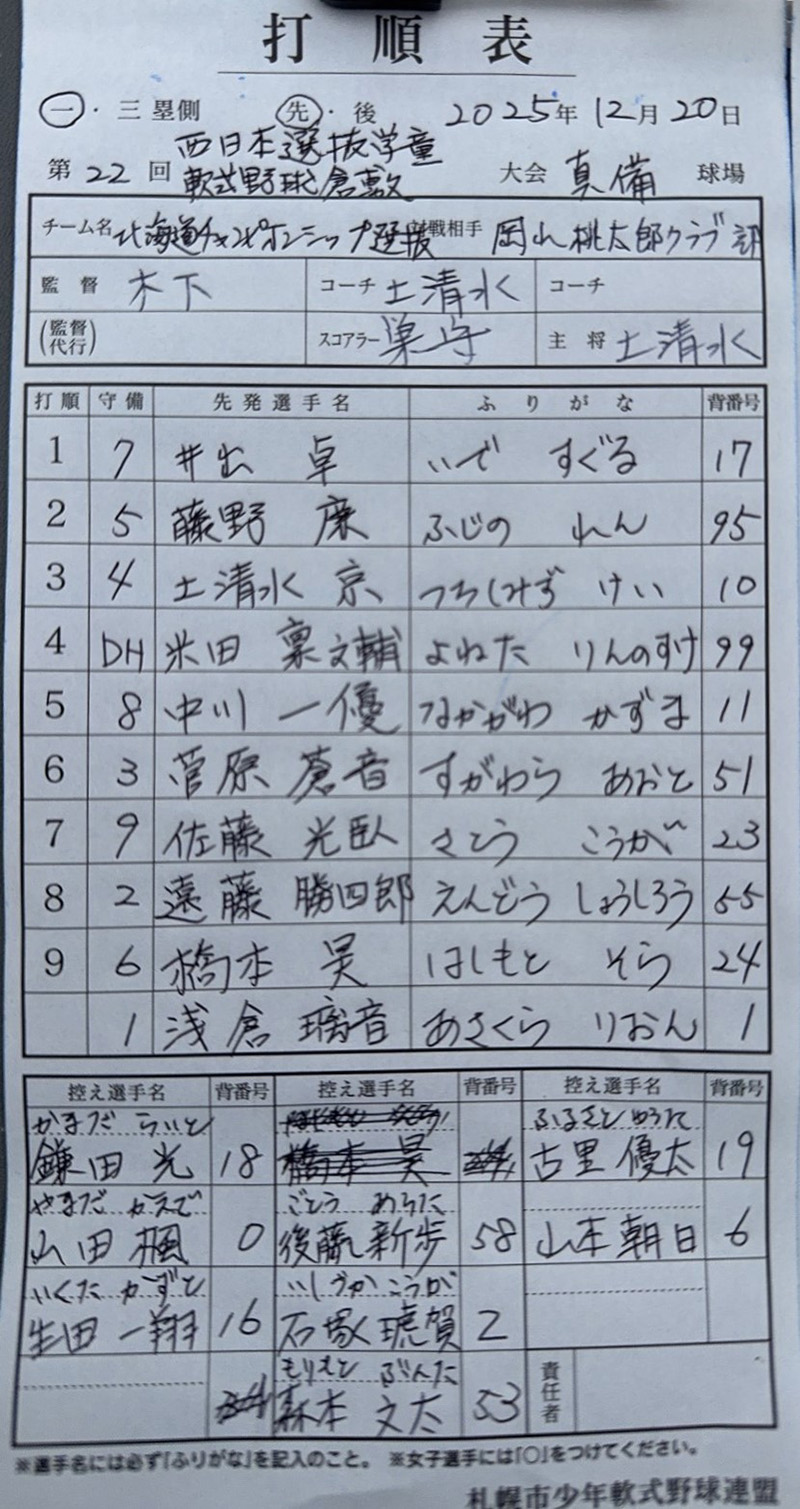 打順表
一・三塁側 先・後 2025年12月20日
第22回 西日本選抜学童軟式野球倉敷大会 真備球場
チーム名 北海道チャンピオンシップ選抜 対戦相手 岡山桃太郎クラブ
監督 木下 コーチ 土清水 コーチ
(監督代行) スコアラー 巣守 主将 土清水
打順 守備 先発選手名 ふりがな 背番号
1 7 井出 卓 いで すぐる 17
2 5 藤野 廉 ふじの れん 95
3 4 土清水 京 つちしみず けい 10
4 DH 米田 稟文輔 よねた りんのすけ 99
5 8 中川 一優 なかがわ かずま 11
6 3 菅原 蒼音 すがわら あおと 51
7 9 佐藤 光臥 さとう こうが 23
8 2 遠藤 勝四郎 えんどう しょうしろう 55
9 6 橋本 昊 はしもと そら 24
1 浅倉 璃音 あさくら りおん 1
控え選手名 背番号 控え選手名 背番号 控え選手名 背番号
かまだ らいと ふるさと ゆうた
鎌田 光 18 橋本 昊 古里 優太 19
やまだ かえで ごとう あらた
山田 楓 0 後藤 新歩 58 山本 朝日 6
いくた かずと いしづか こうが
生田 一翔 16 石塚 琥賀 2
もりもと ぶんた
森本 文太 53 責任者
※選手名には必ず「ふりがな」を記入のこと。 ※女子選手には「○」をつけてください。
札幌市少年軟式野球連盟